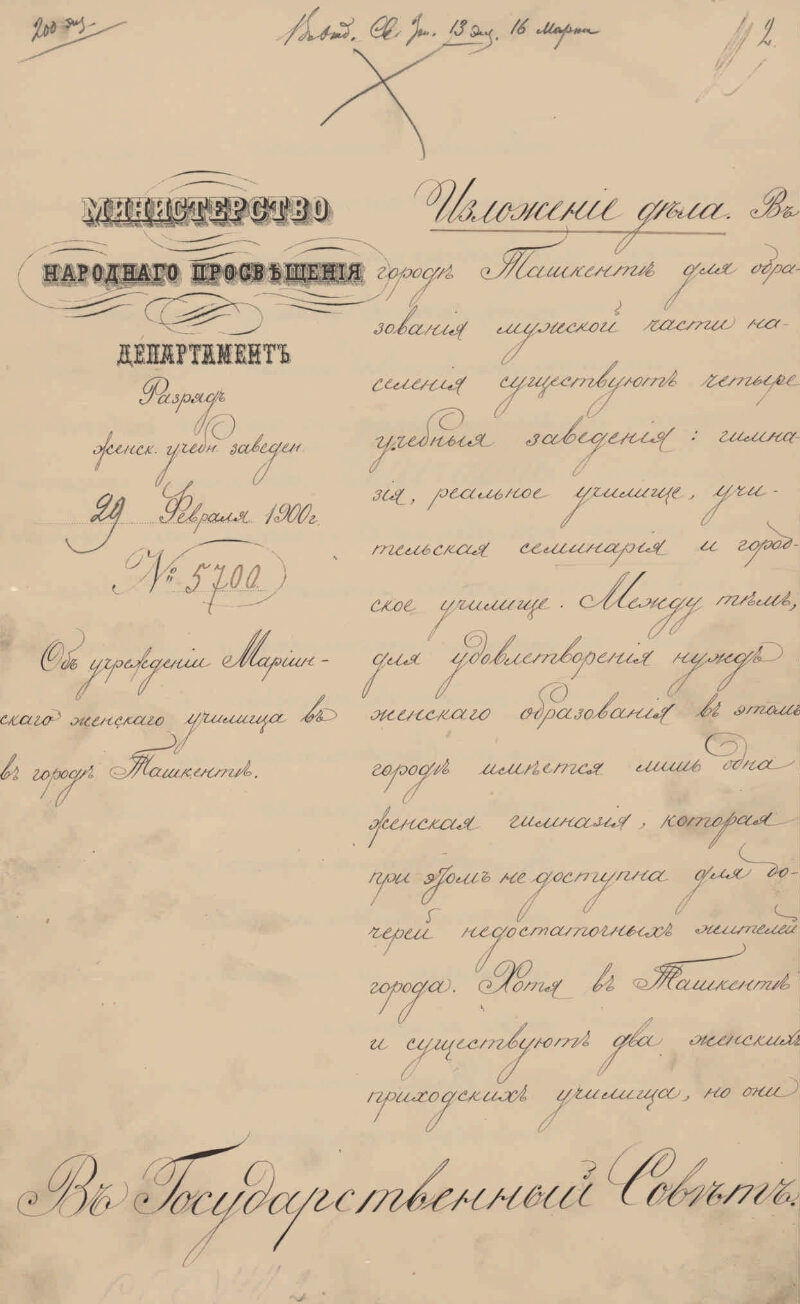 200 экз
Въ отд. Св. Зак. 13 экз. 16 Марта
2
МИНИСТЕРСТВО
НАРОДНАГО ПРОСВѢЩЕНІЯ
ДЕПАРТАМЕНТЪ
Разрядъ
женск. учебн. заведен.
29 Февраля 1900 г.
№ 5700
Объ учрежденіи Маріин-
скаго женскаго училища въ
въ городѣ Ташкентѣ.
Изложеніе дѣла. Въ
городѣ Ташкентѣ для обра-
зованія мужской части на-
селенія существуютъ четыре
учебныя заведенія: гимна-
зія, реальное училище, учи-
тельская семинарія и город-
ское училище. Между тѣмъ,
для удовлетворенія нуждъ
женскаго образованія въ этомъ
городѣ имѣется лишь одна
женская гимназія, которая
при этомъ не доступна для до-
черей недостаточныхъ жителей
города. Хотя въ Ташкентѣ
и существуютъ два женскихъ
приходскихъ училища, но они
Въ Государственный Совѣтъ.